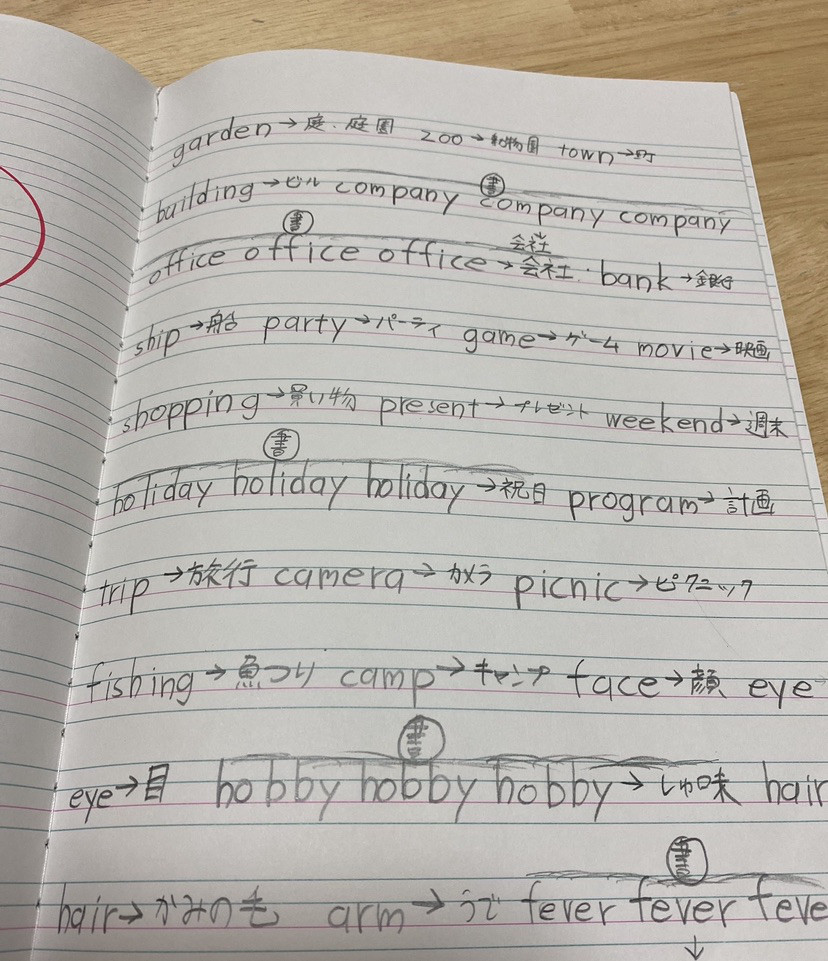 garden→庭、庭園 zoo→動物園 town→町
building→ビル company company company
書
office office office→会社 bank→銀行
書
会社
ship→船 party→パーティ game→ゲーム movie→映画
shopping→買い物 present→プレゼント weekend→週末
書
holiday holiday holiday→祝日 program→計画
trip→旅行 camera→カメラ picnic→ピクニック
fishing→魚つり camp→キャンプ face→顔 eye
書
eye→目 hobby hobby hobby→しゅ味 hair
書
hair→かみのも arm→うで fever fever feve
↓